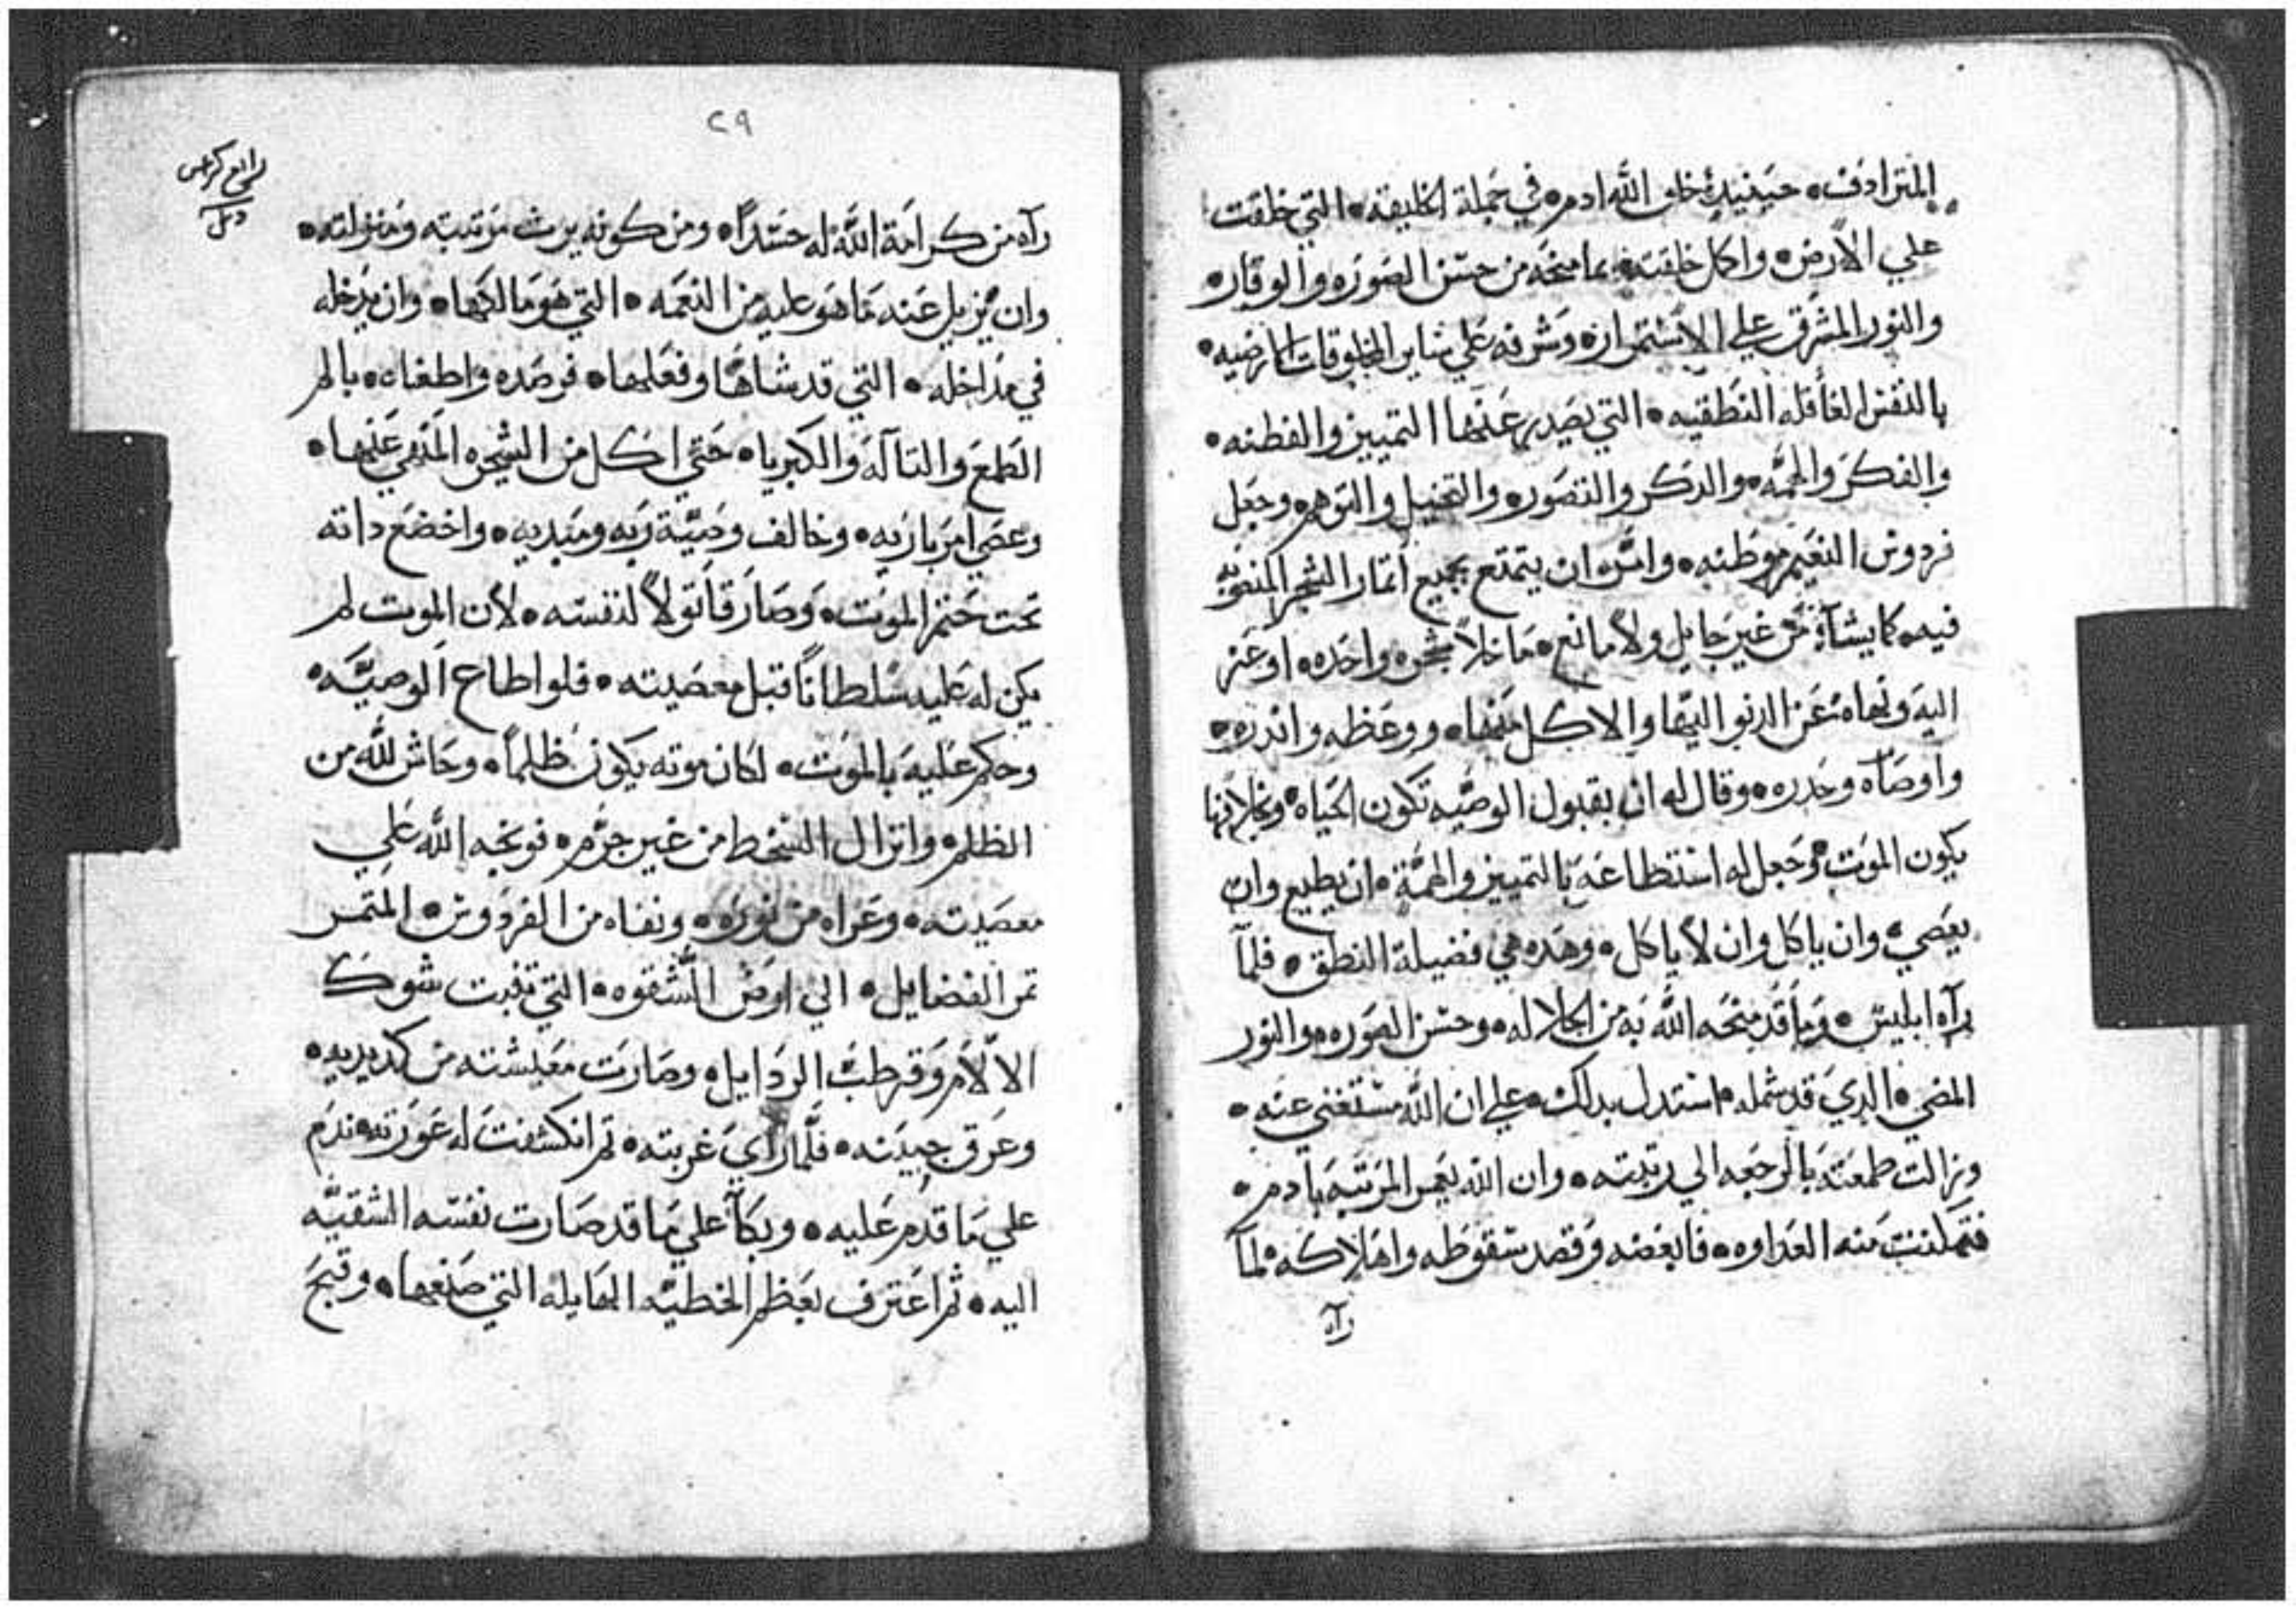 المترادف۰ حينيدٍ خلق الله ادم۰ في جملة الخليقة۰ التي خلقت
علي الارض۰ واكمل خلقته۰ بما منحه من حسن الصوره والوقار۰
والنور المشرق علي الاستمرار۰ وشرفه علي ساير المخلوقات الارضيه۰
بالنفس العاقله النطقيه۰ التي يصدر عنها التمييز والفطنه۰
والفكر والهمه۰ والدكر والتصور۰ والتخيل والتوهم۰ وجعل
فردوس النعيم موطنه۰ وامره ان يتمتع بجميع اتمار الشجر المنصوبه
فيه۰ كما يشآء من غير حايل ولا مانع۰ ما خلا شجره واحده۰ اوعز
اليه ونهاه عن الدنو اليها والاكل منها۰ ووعظه واندره۰
واوصاه وحدره۰ وقال له ان بقبول الوصيه تكون الحياه۰ وبخلافها
يكون الموت۰ وجعل له استطاعه بالتمييز والهمة۰ ان يطيع وان
يعصي۰ وان ياكل وان لا ياكل۰ وهده هي فضيلة النطق۰ فلمآ
رآه ابليس۰ وما قد منحه الله به من الجلاله۰ وحسن الصوره۰ والنور
المضي۰ الدي قد شمله۰ استدل بدلك۰ علي ان الله مستغني عنه۰
وزالت طمعته بالرجعه الي رتبته۰ وان الله يتمم المرتبه بادم۰
فتمكنت منه العداوه۰ فابغضه وقصد سقوطه واهلاكه۰ لمآ
رآه
٢٩
رابع كراس
رآه من كرامة الله له حسداً۰ ومن كونه يرث مرتبته ومنزلته۰
وان يزيل عنه ما هو عليه من النعمه۰ التي هو مالكها۰ وان يدخله
في مداخله۰ التي قد شاها وفعلها۰ فرصده واطغاه۰ بالم
الطمع والتآله والكبريا۰ حتي اكل من الشجره المنهي عنها۰
وعصي امر باريه۰ وخالف وصية ربه ومبديه۰ واخضع داته
تحت ختم الموت۰ وصار قاتولاً لنفسه۰ لان الموت لم
يكن له عليه سلطاناً قبل معصيته۰ فلو اطاع الوصيه۰
وحكم عليه بالموت۰ لكان موته يكون ظلماً۰ وحاش لله من
الظلم۰ وانزال السخط من غير جرم۰ فوبخه الله علي
معصيته۰ وعراه من نوره۰ ونفاه من الفردوس۰ المتمر
تمر الفضايل۰ الي ارض الشقوه۰ التي تنبت شوك
الالام وقرطب الردايل۰ وصارت معيشته من كد يديه۰
وعرق جبينه۰ فلما راي غربته۰ تم انكشفت له عورته۰ ندم
علي ما قدم عليه۰ وبكآ علي ما قد صارت نفسه الشقيه
اليه۰ ثم اعترف بعظم الخطيه الهايله التي صنعها۰ وقبح